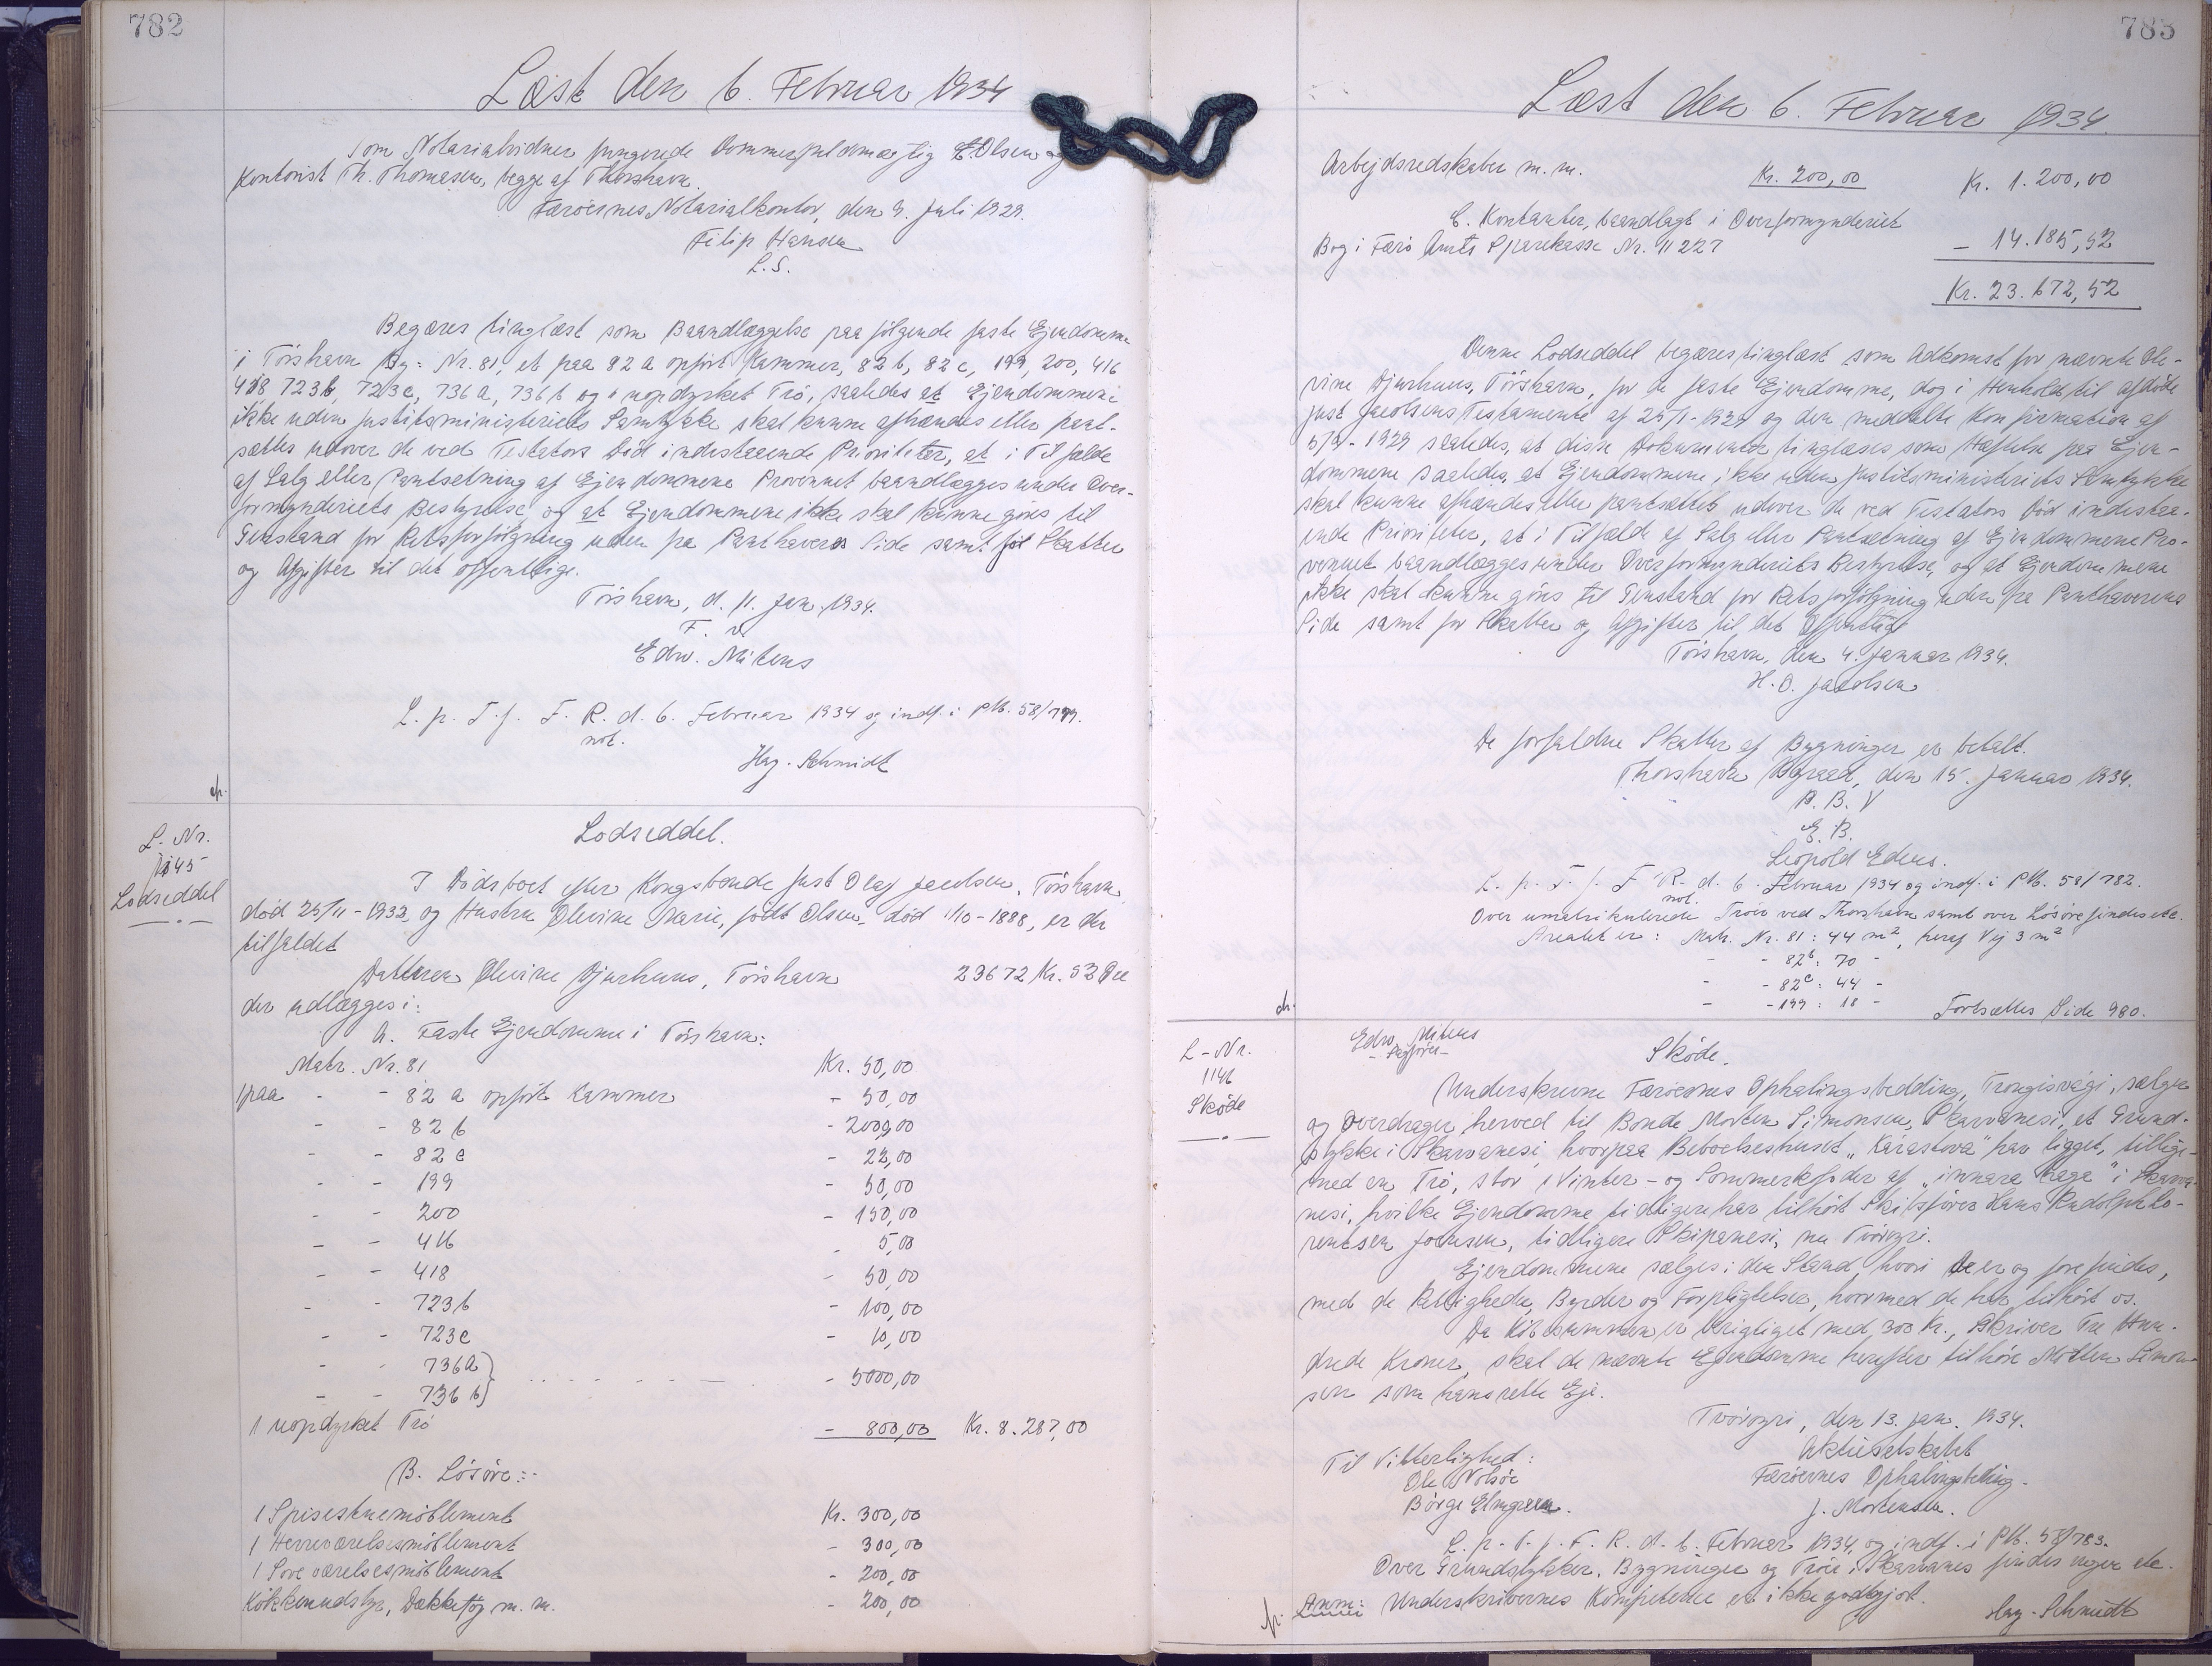 782
Læst den 6. Februar 1934
Som Notarialvidner fungerede Dommerfuldmægtig E. Olsen og
Kontorist Th. Thomasen, begge af Thorshavn.
Færöernes Notarialkontor, den 9. Juli 1929.
Filip Hansen
L.S.
Begæres tinglæst som Baandlæggelse paa følgende faste Ejendomme
i Tórshavn By: Nr. 81, et paa 82 a opfört Kammer, 82 b, 82 c, 199, 200, 416
418, 723b, 723c, 736 a, 736 b og 1 uopdyrket Trö, saaledes at Ejendommene
ikke uden Justitsministeriets Samtykke skal kunne afhændes eller pant-
sættes udover de ved Testators Död indestaaende Prioriteter, at i Tilfælde
af Salg eller Pantsætning af Ejendommene Provenuet baandlægges under Over-
formynderiets Bestyrelse, og at Ejendommene ikke skal kunne göres til
Genstand for Retsforfölgning uden fra Panthaveres Side samt for Skatter
og Afgifter til det offentlige.
Tórshavn, d. 11. Jan. 1934.
F. v.
Edw. Mitens
L. p. T. f. F. R. d. 6. Februar 1934 og indf. i PB. 58/
not.
Hag. Schmidt
L. Nr.
1145
Lodseddel
Lodseddel.
I Dödsboet efter Kongsbonde Just Olaf Jacobsen, Tórshavn
död 25/11-1932 og Hustru Olevine Marie, födt Olsen, död 1/10-1888, er der
tilfaldet
Datteren Olevine Djurhuus, Tórshavn 23672 Kr. 52 Öre
der udlægges i:
A. Faste Ejendomme i Tórshavn:
Matr. Nr. 81 Kr. 50,00
1 paa - - 82 a opfört Kammer - 50,00
- - 82 b - 2000,00
- - 82 c - 22,00
- - 199 - 50,00
- - 200 - 150,00
- - 416 - 5,00
- - 418 - 50,00
- - 723b - 100,00
- - 723c - 10,00
- - 736a
- - 736 b - 5000,00
1 uopdyrket Trö - 800,00 Kr. 8.287,00
B. Lösöre:
1 Spisestuemöblement Kr. 300,00
1 Herreværelsesmöblement - 300,00
1 Soveværelsesmöblement - 200,00
Kökkenudstyr, Dækketöj m. m. - 200,00
783
Læst den 6. Februar 1934.
Arbejdsredskaber m. m. Kr. 200,00 Kr. 1.200,00
C. Kontanter, baandlagt i Overformynderiet
Bog i Færö Amts Sparekasse Nr. 11227 - 14.185,52
Kr. 23.672,52
Denne Lodseddel begæres tinglæst som Adkomst for nævnte Ole-
vine Djurhuus, Tórshavn, for de faste Ejendomme, dog i Henhold til afdöde
Just Jacobsens Testamente af 25/1-1929 og den meddelte Konfirmation af
1929 saaledes, at disse Dokumenter tinglæses som Hæftelse paa Ejen-
dommene saaledes, at Ejendommene ikke uden Justitsministeriets Samtykke
skal kunne afhændes eller pantsættes udover de ved Testators Död indestaa-
ende Prioriteter, at i Tilfælde af Salg eller Pantsætning af Ejendommene Pro-
venuet baandlægges under Overformynderiets Bestyrelse, og at Ejendommene
ikke skal kunne göres til Genstand for Retsforfölgning uden fra Panthaverens
Side samt for Skatter og Afgifter til det Offentlige
Tórshavn, den 4. Januar 1934.
H. O. Jacobsen
De forfaldne Skatter af Bygninger er betalt.
Thorshavn Byraad, den 15. Januar 1934.
P. B. V
E. B.
Leopold
L. p. T. f. F. R. d. 6. Februar 1934 og indf. i PB. 58/782.
not.
Over umatrikulerede Tröer ved Thorshavn samt over Lösöre findes ete.
Arealet er: Matr. Nr. 81: 44 m², heraf Vej 3 m²
- - 82b: 70 -
- - 82c: 44 -
- - 199: 18 -
Fortsættes Side 980.
L-Nr.
1146
Sköde
Edw. Mitens
- Sagförer -
Sköde.
Underskrevne Færöernes Ophalingsbedding, Trongisvági, sælger
og overdrager herved til Bonde Morten Simonsen, Skarvanesi, et Grund-
stykke i Skarvanesi, hvorpaa Beboelseshuset "Kárastova" har ligget, tillige-
med en Trö, stor 1 Vinter- og Sommerkofoder af "innara haga" i Skarva-
nesi, hvilke Ejendomme tidligere har tilhört Skibsförer Hans Rudolph Lo-
rentsen Joensen, tidligere Skipanesi, nu Tvöroyri.
Ejendommene sælges i den Stand, hvori de er og forefindes,
med de Rettigheder, Byrder og Forpligtelser, hvormed de har tilhört os.
Da Köbesummen er berigtiget med 300 Kr., skriver Tre Hun-
drede Kroner, skal de nævnte Ejendomme herefter tilhöre Morten Simon-
sen som hans rette Eje.
Tvöroyri, den 13. Jan. 1934.
Aktieselskabet
Færöernes Ophalingsbedding.
J. Mortensen.
Til Vitterlighed:
Ole Nolsöe
Börge Elmgreen.
L. p. T. f. F. R. d. 6. Februar 1934 og indf. i PB. 58/783.
Over Grundstykker, Bygninger og Tröer i Skarvanes findes ingen ete.
Anm: Underskrivernes Kompetence er ikke godtgjort.
Hag. Schmidt